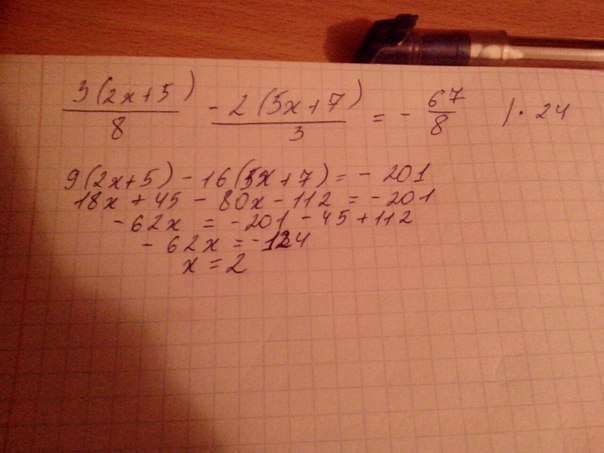 3(2x+5)/8 - 2(5x+7)/3 = - 67/8 | · 24
9(2x+5) - 16(5x+7) = - 201
18x + 45 - 80x - 112 = - 201
- 62x = - 201 - 45 + 112
- 62x = - 124
x = 2